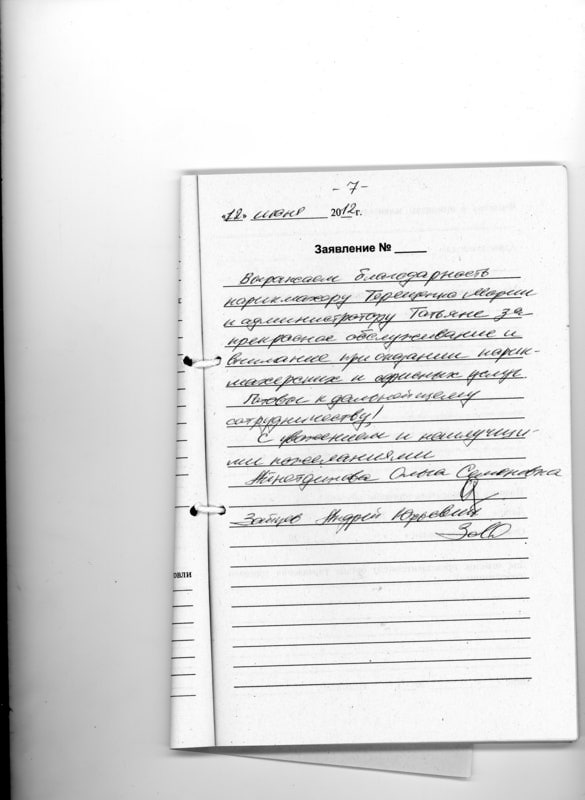 - 7 -
«12» июня 2012 г.
Заявление №
Выражаем благодарность
парикмахеру Терещенко Марии
и администратору Татьяне за
прекрасное обслуживание и
внимание при оказании парик-
махерских и офисных услуг.
Готовы к дальнейшему
сотрудничеству!
С уважением и наилучши-
ми пожеланиями
Ольга Семеновна
Зайцев Андрей Юрьевич
овли